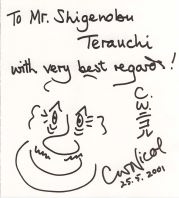 To Mr. Shigenobu
Terauchi
with very best regards!
C.W.ニコル
CWNicol
25.5.2001